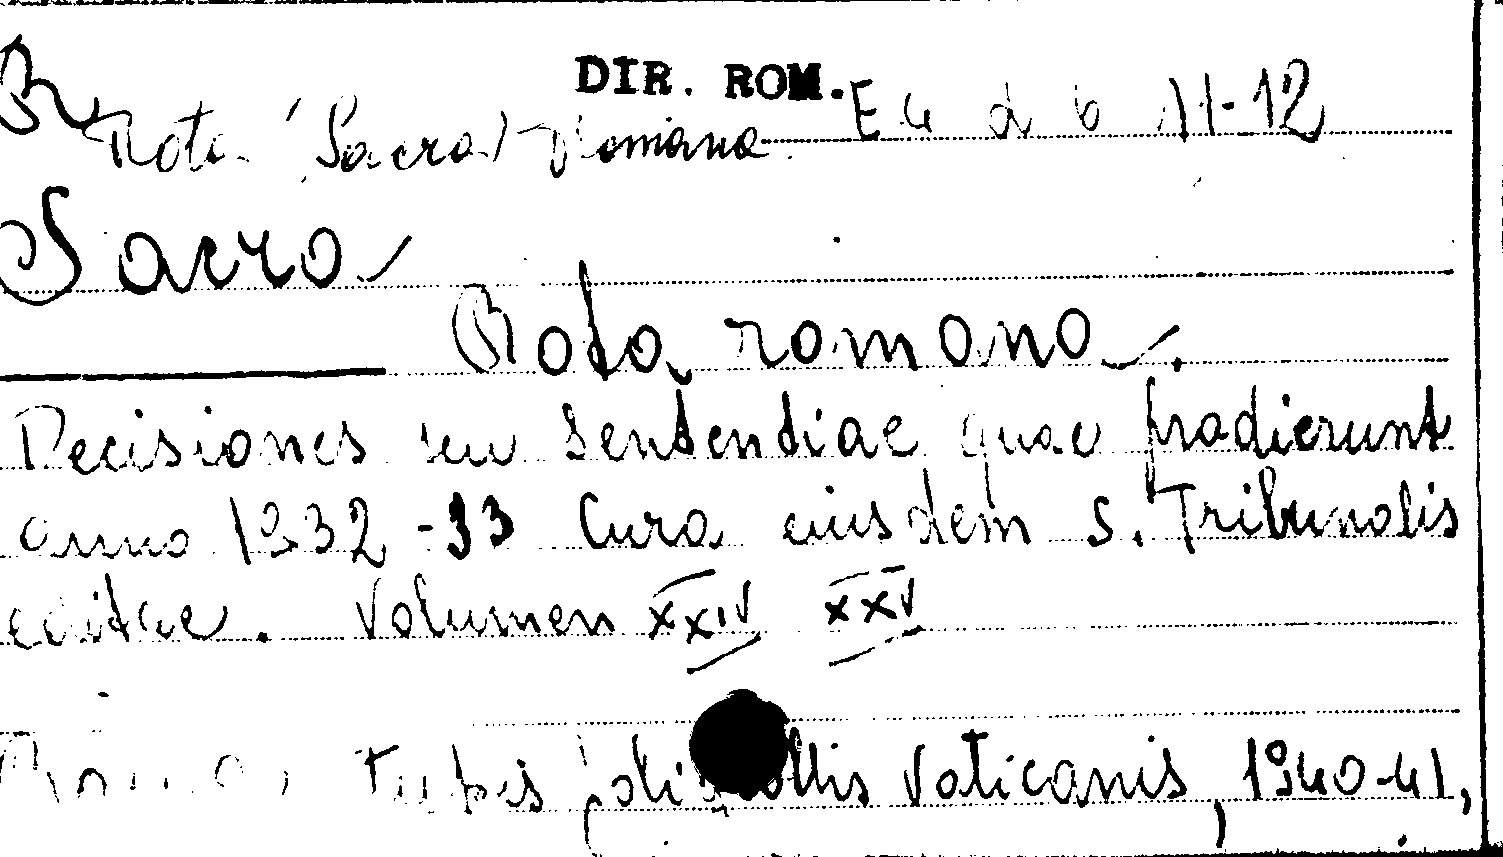 DIR. ROM. E 4 d 6 11-12
Rota (Sacra) Romana
Sacra
Rota romana.
Decisiones seu sententiae quae prodierunt
anno 1932-33 Cura eiusdem S. Tribunalis
editae. Volumen XXIV XXV
Typis Vaticanis, 1940-41,